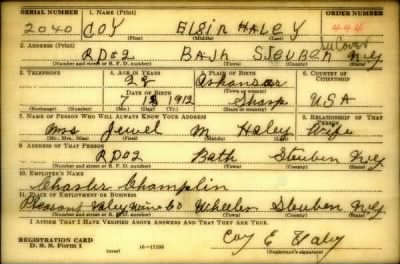 SERIAL NUMBER 1. NAME (Print)
2040 COY Elgin HALEY 444
(First) (Middle) (Last)
2. ADDRESS (Print)
RD#2 BATH STEUBEN N.Y.
(Number and street or R. F. D. number) (Town) (County) (State)
3. TELEPHONE 4. AGE IN YEARS 5. PLACE OF BIRTH 6. COUNTRY OF CITIZENSHIP
28 Arkansas
DATE OF BIRTH
7 1912 Sharp USA
(Exchange) (Number) (Mo.) (Day) (Yr.) (State or country)
7. NAME OF PERSON WHO WILL ALWAYS KNOW YOUR ADDRESS 8. RELATIONSHIP OF THAT PERSON
Mrs Jewel M Haley Wife
(Mr., Mrs., Miss) (First) (Middle) (Last)
9. ADDRESS OF THAT PERSON
RD#2 Bath Steuben N.Y.
(Number and street or R. F. D. number) (Town) (County) (State)
10. EMPLOYER'S NAME
Charles Champlin
11. PLACE OF EMPLOYMENT OR BUSINESS
Pleasant Valley Wine Co Wheeler Steuben N.Y.
(Number and street or R. F. D. number) (Town) (County) (State)
I AFFIRM THAT I HAVE VERIFIED ABOVE ANSWERS AND THAT THEY ARE TRUE.
REGISTRATION CARD
D. S. S. Form 1 (over) 16—17105 Coy E Haley
(Registrant's signature)